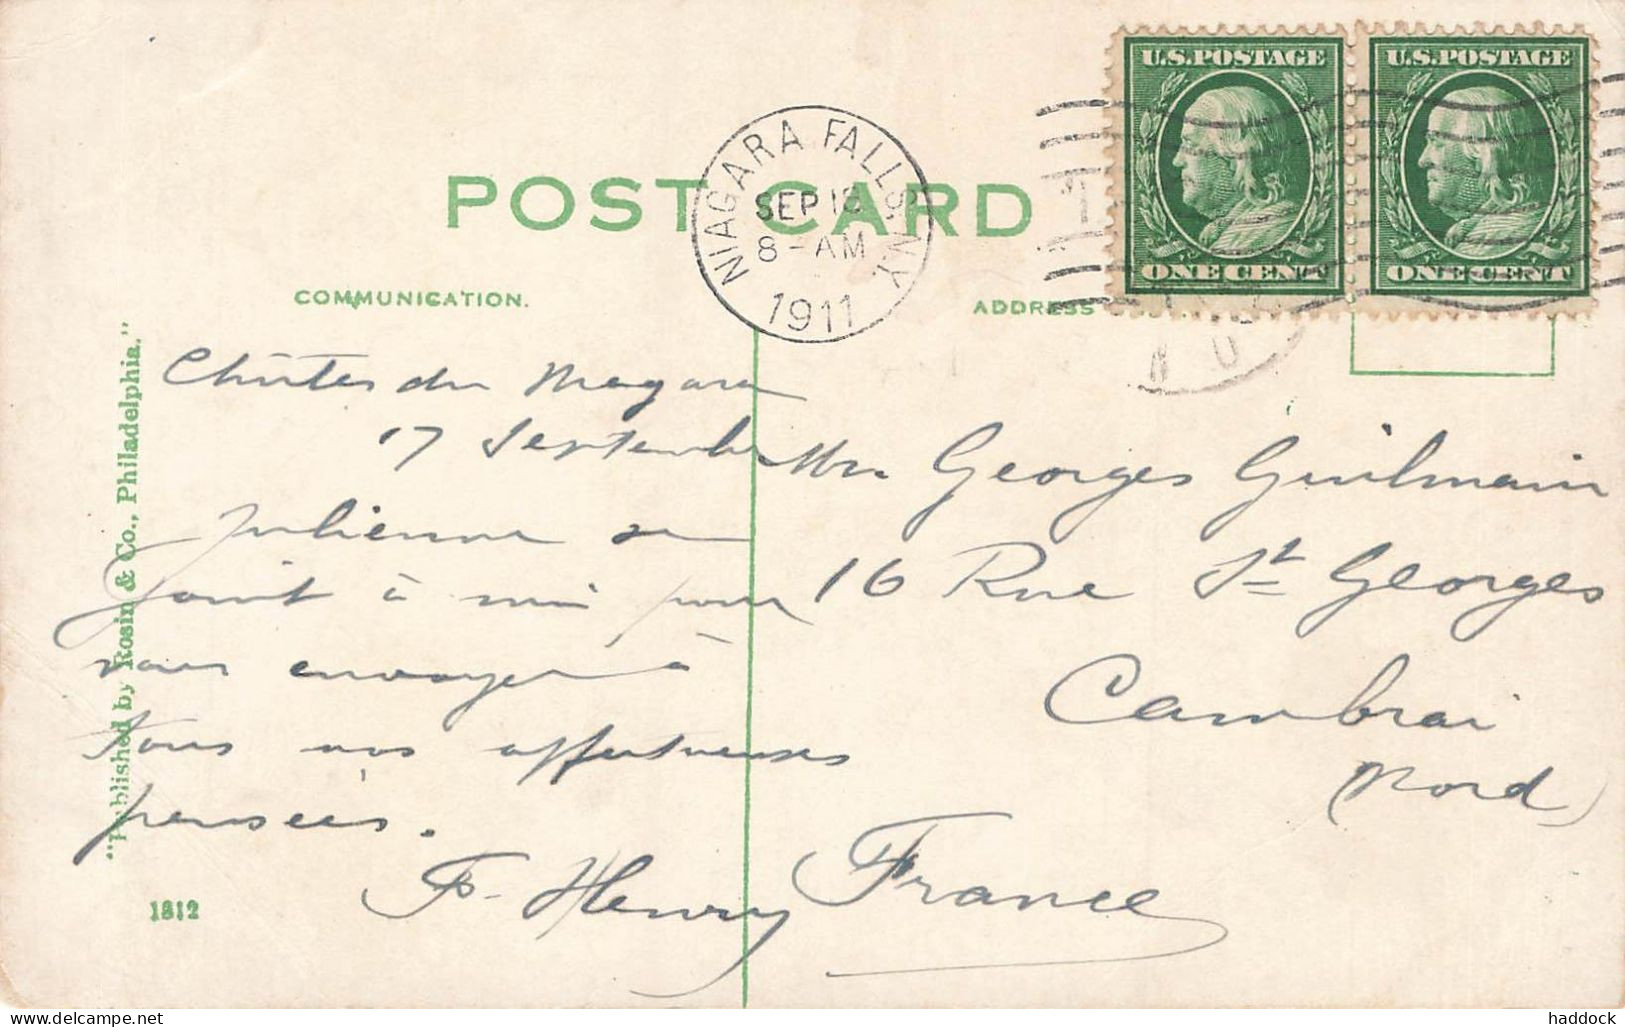 U.S.POSTAGE
ONE CENT
U.S.POSTAGE
ONE CENT
NIAGARA FALLS, N.Y.
SEP 18
8-AM
1911
POST CARD
COMMUNICATION.
ADDRESS
"Published by Rosin & Co., Philadelphia."
1812
Chûtes du Niagara
17 Septembre
Julienne se
joint à moi pour
vous envoyer à
tous nos affectueuses
pensées.
F. Henry
Georges Guilmain
16 Rue St Georges
Cambrai
(Nord)
France
haddock